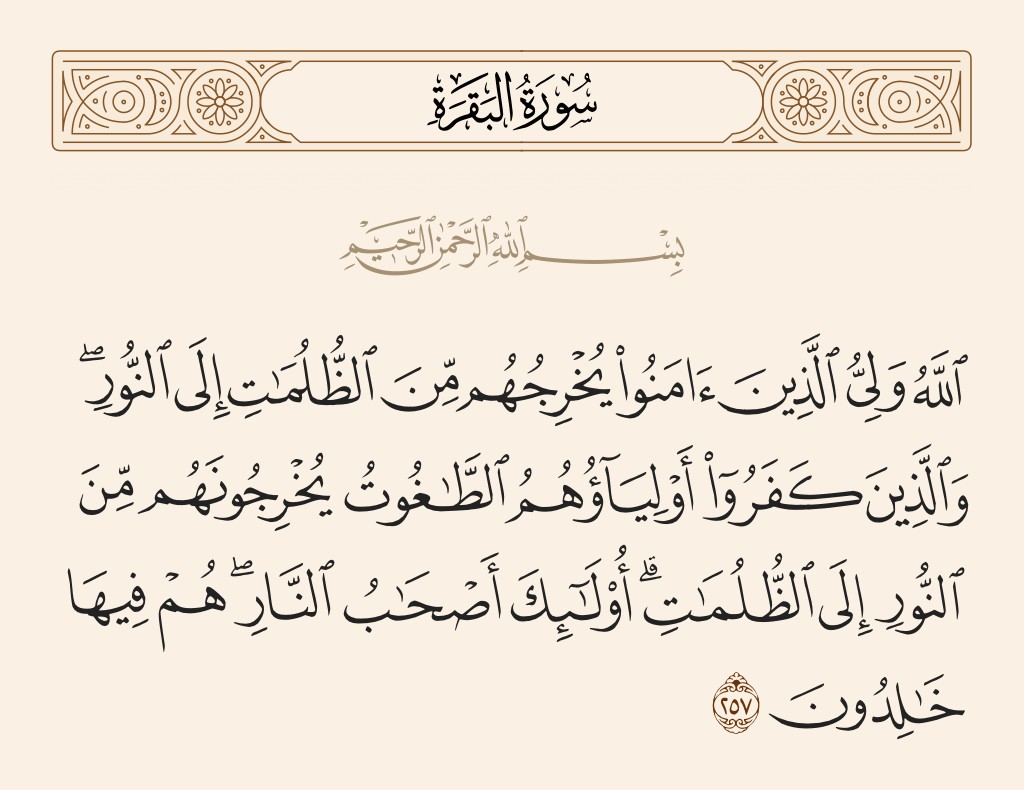 سُورَةُ البَقَرَةِ
بِسْمِ ٱللَّهِ ٱلرَّحْمَٰنِ ٱلرَّحِيمِ
ٱللَّهُ وَلِىُّ ٱلَّذِينَ ءَامَنُوا۟ يُخْرِجُهُم مِّنَ ٱلظُّلُمَٰتِ إِلَى ٱلنُّورِ ۖ
وَٱلَّذِينَ كَفَرُوٓا۟ أَوْلِيَآؤُهُمُ ٱلطَّٰغُوتُ يُخْرِجُونَهُم مِّنَ
ٱلنُّورِ إِلَى ٱلظُّلُمَٰتِ ۗ أُو۟لَٰٓئِكَ أَصْحَٰبُ ٱلنَّارِ ۖ هُمْ فِيهَا
خَٰلِدُونَ ٢٥٧